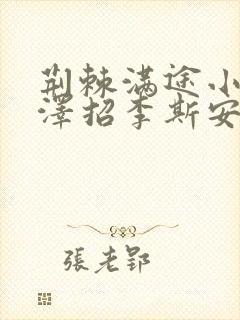 荆棘满途小
澤招李斯安
張老郢